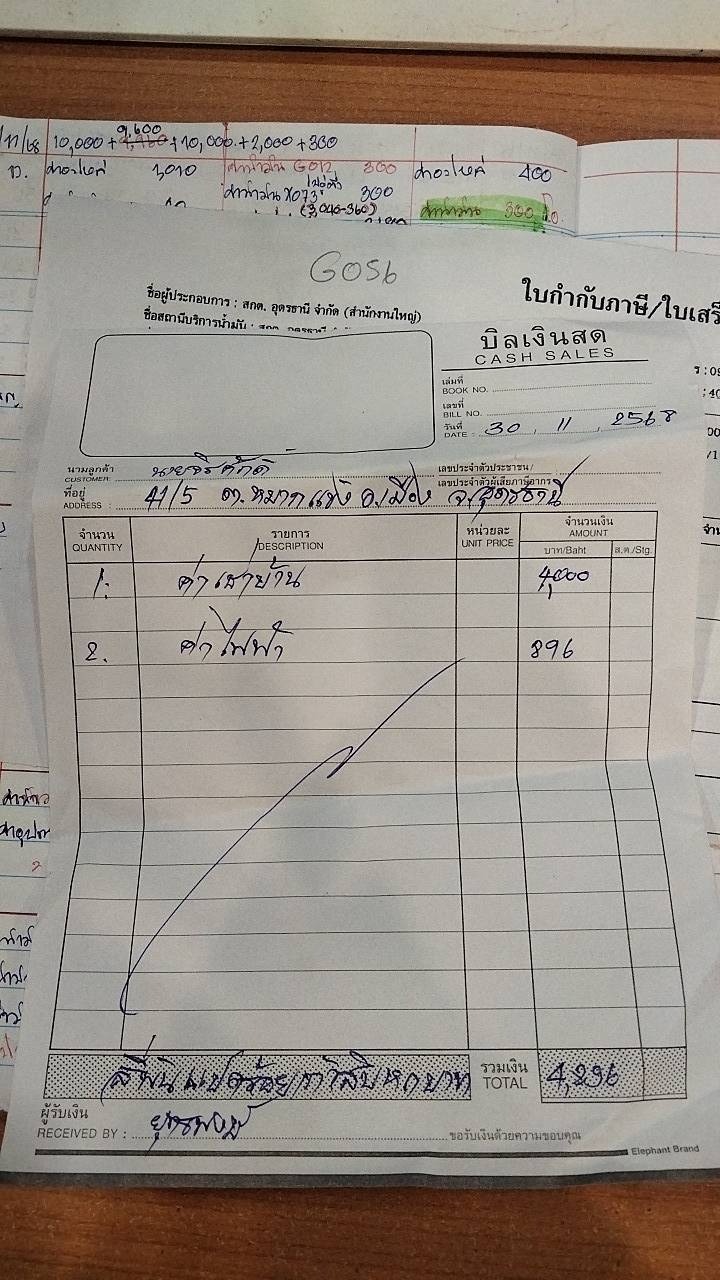 /11/68 10,000 + 9,600 + 10,000 + 2,000 + 300
ค่าอะไหล่ 1,010 ค่าน้ำมัน GO12 300 ค่าอะไหล่ 400
ค่าน้ำมัน X073 300
(3,040-360)
ค่าน้ำมัน 300
GO56
ใบกำกับภาษี/ใบเสร็
ชื่อผู้ประกอบการ : สกต. อุดรธานี จำกัด (สำนักงานใหญ่)
ชื่อสถานีบริการน้ำมัน :
บิลเงินสด
CASH SALES
เล่มที่
BOOK NO.
เลขที่
BILL NO.
วันที่
DATE : 30 , 11 , 2568
นามลูกค้า
CUSTOMER: นายจีรศักดิ์
เลขประจำตัวประชาชน/
เลขประจำตัวผู้เสียภาษีอากร
ที่อยู่
ADDRESS : 41/5 ต.หมากแข้ง อ.เมือง จ.อุดรธานี
จำนวน รายการ หน่วยละ จำนวนเงิน
QUANTITY DESCRIPTION UNIT PRICE AMOUNT
บาท/Baht ส.ต./Stg.
1. ค่าเช่าบ้าน 4,000
2. ค่าไฟฟ้า 896
สี่พันแปดร้อยเก้าสิบหกบาท
รวมเงิน
TOTAL 4,896
ผู้รับเงิน
RECEIVED BY :
ขอรับเงินด้วยความขอบคุณ
Elephant Brand